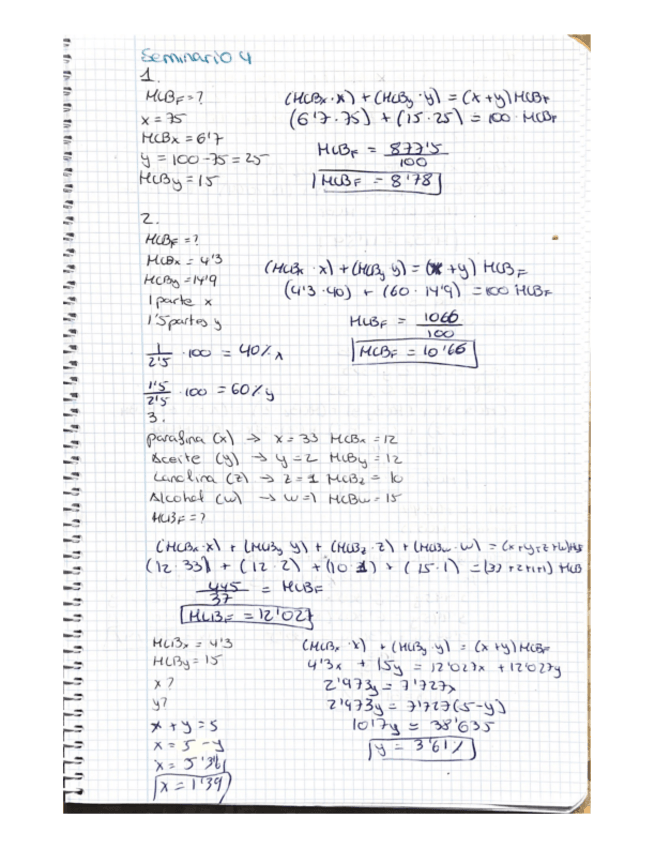 Seminario 4
1.
HLB_F = ?
x = 75
HLBx = 6'7
y = 100-75 = 25
HLBy = 15
(HLBx · x) + (HLBy · y) = (x+y) HLB_F
(6'7 · 75) + (15 · 25) = 100 · HLB_F
HLB_F = 877'5 / 100
HLB_F = 8'78
2.
HLB_F = ?
HLBx = 4'3
HLBy = 14'9
1 parte x
1'5 partes y
1/2'5 · 100 = 40% x
1'5/2'5 · 100 = 60% y
(HLBx · x) + (HLBy y) = (x+y) HLB_F
(4'3 · 40) + (60 · 14'9) = 100 HLB_F
HLB_F = 1066 / 100
HLB_F = 10'66
3.
parafina (x) → x = 33 HLBx = 12
Aceite (y) → y = 2 HLBy = 12
Lanolina (z) → z = 1 HLBz = 10
Alcohol (w) → w = 1 HLBw = 15
HLB_F = ?
(HLBx · x) + (HLBy y) + (HLBz · z) + (HLBw · w) = (x+y+z+w) HLB
(12 · 33) + (12 · 2) + (10 · 1) + (15 · 1) = (33+2+1+1) HLB
445 / 37 = HLB_F
HLB_F = 12'027
HLBx = 4'3
HLBy = 15
x ?
y?
x + y = 5
x = 5 - y
x = 5 - 3'61
x = 1'39
(HLBx · x) + (HLBy · y) = (x+y) HLB_F
4'3x + 15y = 12'027x + 12'027y
2'973y = 7'727x
2'973y = 7'727(5-y)
10'7y = 38'635
y = 3'61%